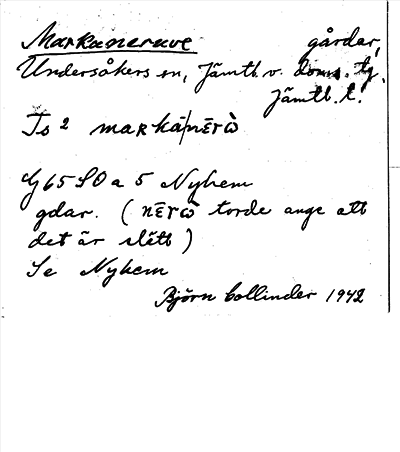 Markaneruve gårdar,
Undersåkers sn, Jämtl. v. doms. tg,
Jämtl. l.
To 2 marka|nērὼ
G 65 SO a 5 Nyhem
gdar. (nērὼ torde ange att
det är slätt)
Se Nyhem
Björn Collinder 1942